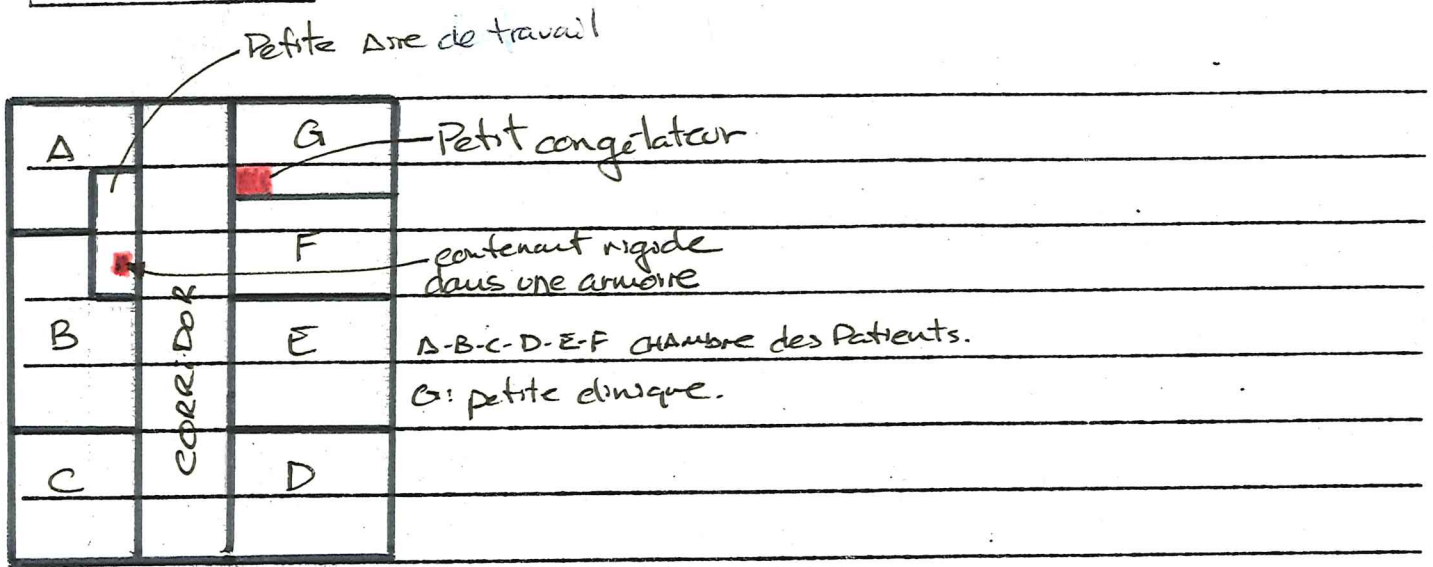 Petite Aire de travail
A
G
Petit congélateur
F
contenant rigide
dans une armoire
B
CORRIDOR
E
A-B-C-D-E-F CHAMBRE des Patients.
G: petite clinique.
C
D